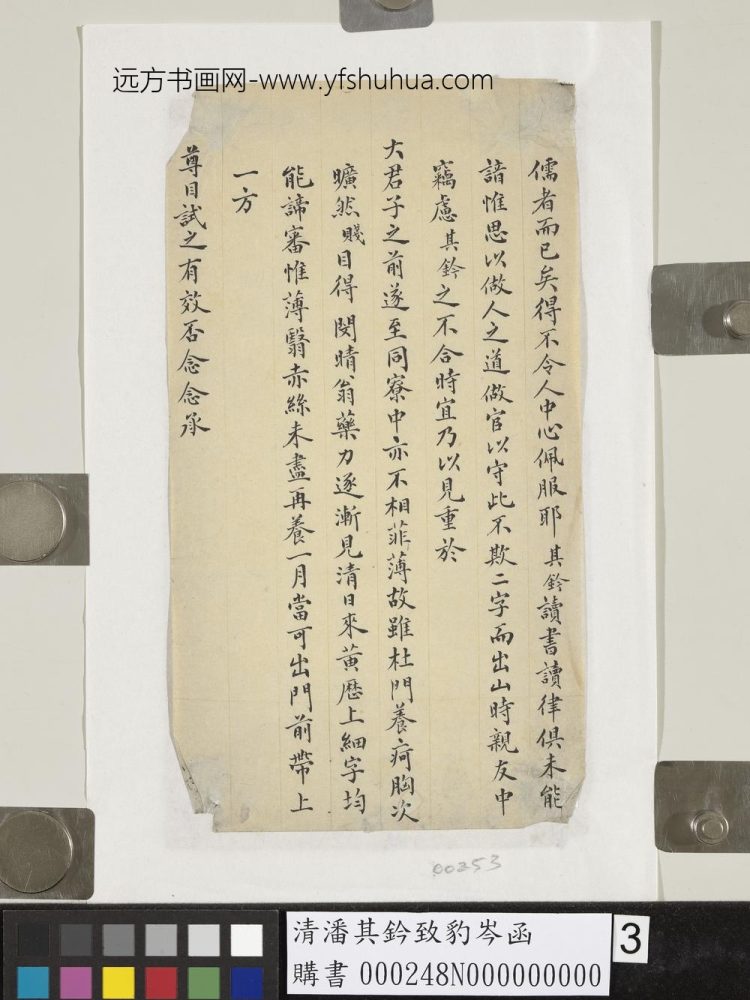 远方书画网-www.yfshuhua.com
儒者而已矣得不令人中心佩服耶其鈐讀書讀律俱未能
諳惟思以做人之道做官以守此不欺二字而出山時親友中
竊慮其鈐之不合時宜乃以見重於
大君子之前遂至同寮中亦不相菲薄故雖杜門養疴胸次
曠然賤目得閔晴翁藥力逐漸見清日來黃歷上細字均
能諦審惟薄翳赤絲未盡再養一月當可出門前帶上
一方
尊目試之有效否念念承
00253
清潘其鈐致豹岑函
購書 000248N000000000
3